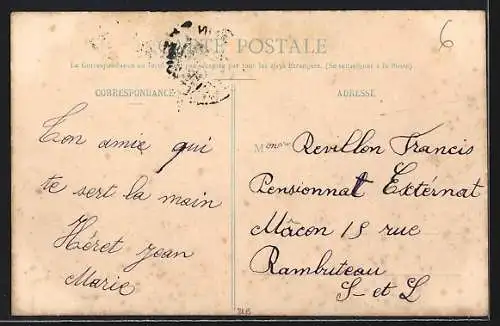 CARTE POSTALE
La Correspondance au recto n'est pas acceptée par tous les pays étrangers. (Se renseigner à la Poste)
6
CORRESPONDANCE
Ton amie qui
te sert la main
Héret Jean
Marie
ADRESSE
Monsieur Revillon Francis
Pensionnat Externat
Mâcon 15 rue
Rambuteau
S-et L